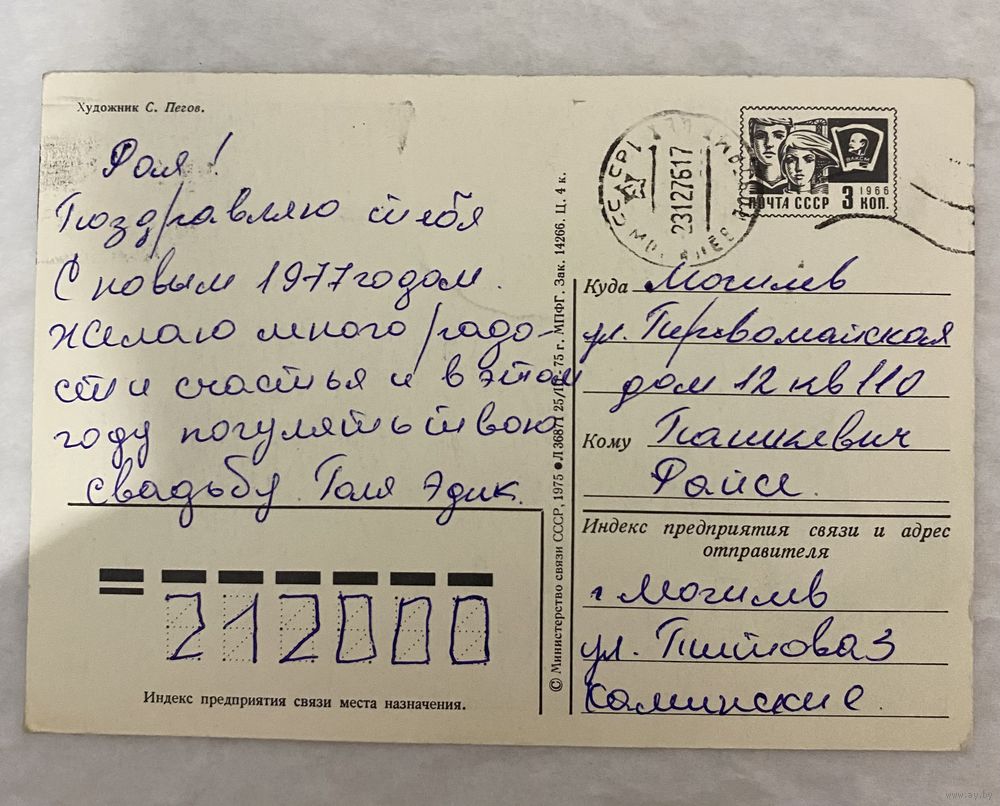 Художник С. Пегов.
Рая!
Поздравляю тебя
С новым 1977 годом.
Желаю много радо-
сти счастья и в этом
году погулять твою
свадьбу. Галя Эдик.
212000
Индекс предприятия связи места назначения.
© Министерство связи СССР, 1975 ● Л 36871 25/III-75 г. МПФГ. Зак. 14266. Ц. 4 к.
СССР
23127617
ВЛКСМ
1966
ПОЧТА СССР 3 КОП.
Куда Могилев
ул. Первомайская
дом 12 кв 110
Кому Пашкевич
Раисе.
Индекс предприятия связи и адрес
отправителя
г Могилев
ул. Титова 3
Каминские.
www.ay.by